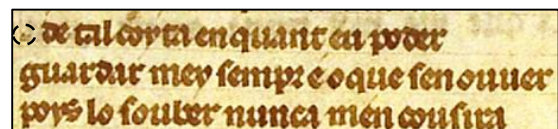 de tal coyta en quant eu poder
guardar mey sempre o que sen ouuer
poys lo souber nunca men cousira